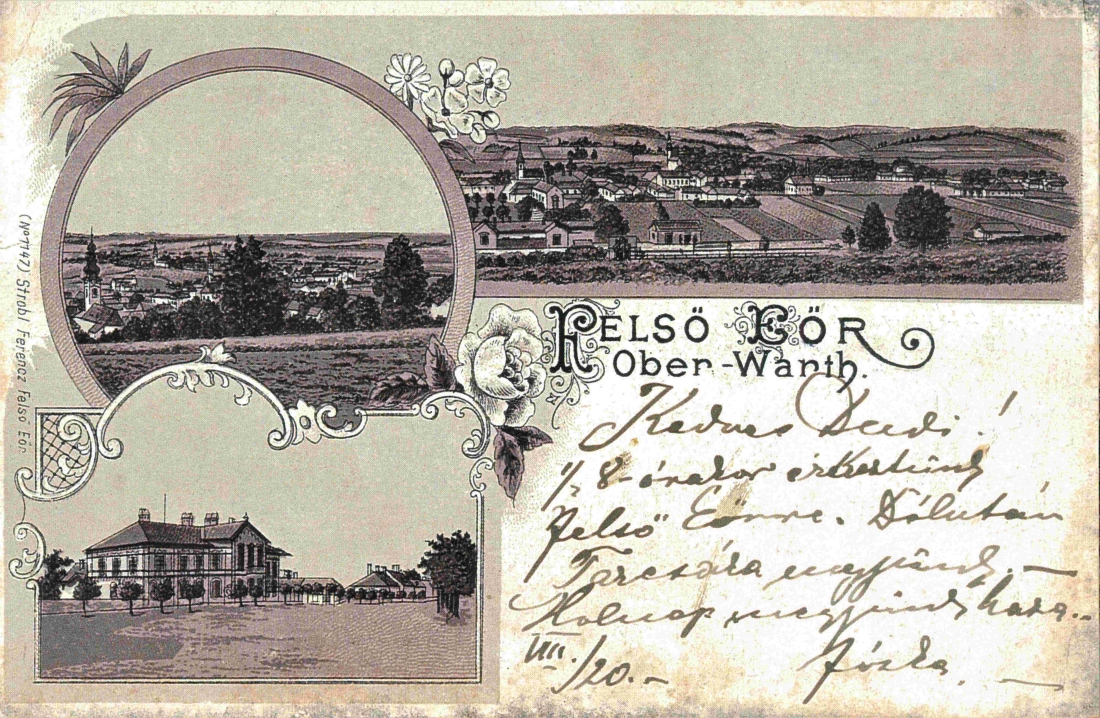 (No 7147) Strobl Ferencz Felső Eőr.
FELSŐ EŐR
Ober-Warth.
Kedves Dudi!
½ 8-órakor érkeztünk
Felső Eőrre. Délután
Tarcsára megyünk. —
Holnap megyünk haza.-
VIII./20.-
Jóska. —